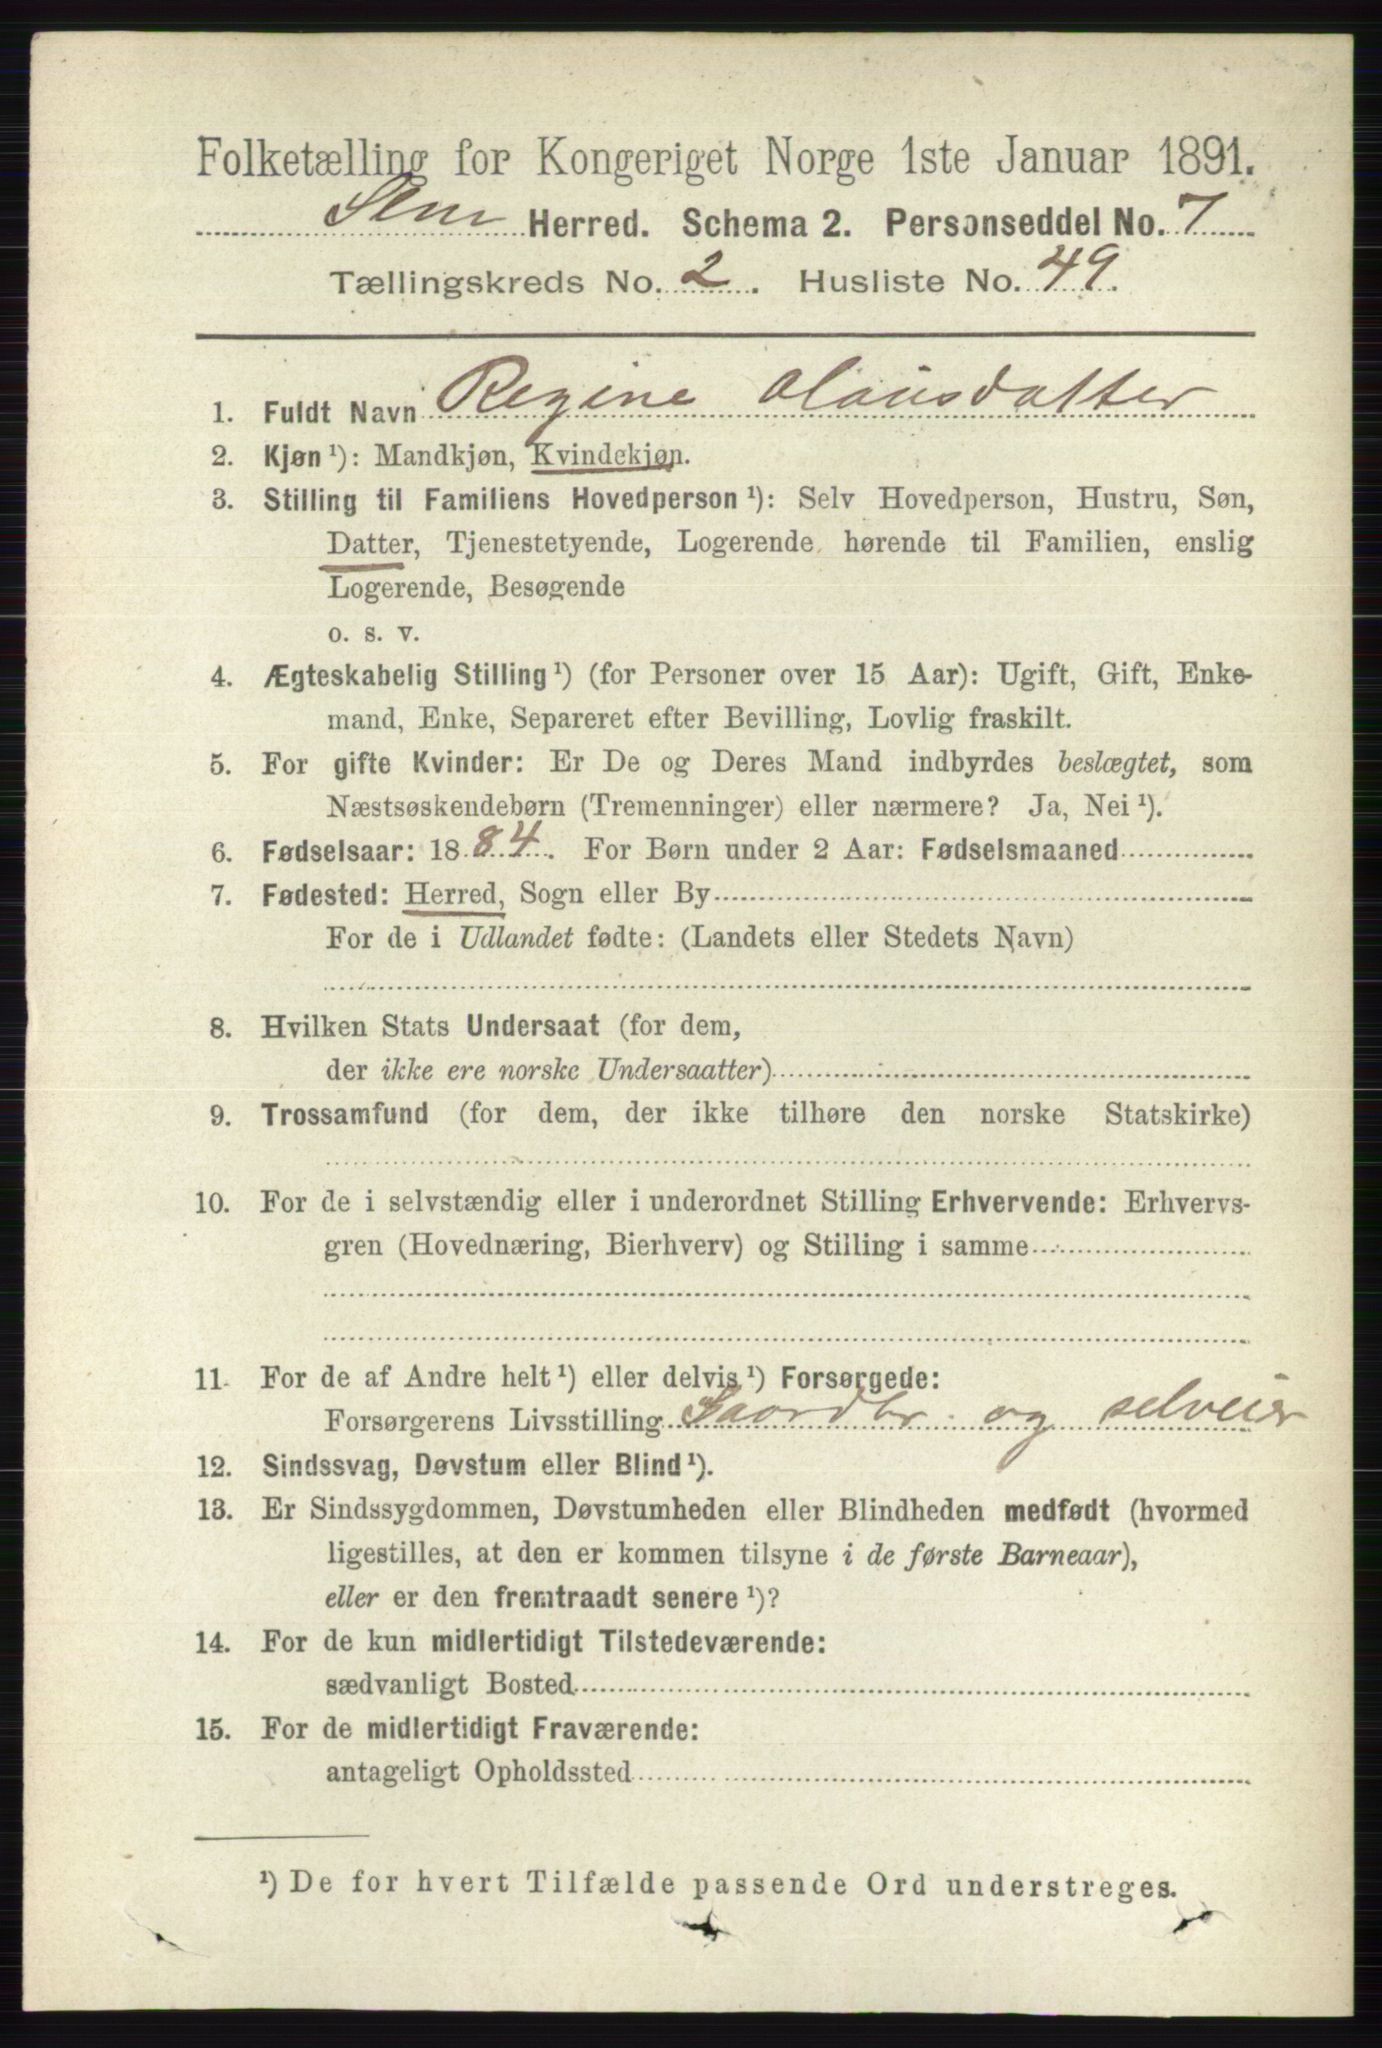 Folketælling for Kongeriget Norge 1ste Januar 1891.
Sem Herred. Schema 2. Personseddel No. 7
Tællingskreds No. 2. Husliste No. 49.
1. Fuldt Navn Regine Olausdatter
2. Kjøn ¹): Mandkjøn, Kvindekjøn.
3. Stilling til Familiens Hovedperson ¹): Selv Hovedperson, Hustru, Søn,
Datter, Tjenestetyende, Logerende hørende til Familien, enslig
Logerende, Besøgende
o. s. v.
4. Ægteskabelig Stilling ¹) (for Personer over 15 Aar): Ugift, Gift, Enke-
mand, Enke, Separeret efter Bevilling, Lovlig fraskilt.
5. For gifte Kvinder: Er De og Deres Mand indbyrdes beslægtet, som
Næstsøskendebørn (Tremenninger) eller nærmere? Ja, Nei ¹).
6. Fødselsaar: 1884. For Børn under 2 Aar: Fødselsmaaned
7. Fødested: Herred, Sogn eller By
For de i Udlandet fødte: (Landets eller Stedets Navn)
8. Hvilken Stats Undersaat (for dem,
der ikke ere norske Undersaatter)
9. Trossamfund (for dem, der ikke tilhøre den norske Statskirke)
10. For de i selvstændig eller i underordnet Stilling Erhvervende: Erhvervs-
gren (Hovednæring, Bierhverv) og Stilling i samme
11. For de af Andre helt ¹) eller delvis ¹) Forsørgede:
Forsørgerens Livsstilling Gaardbr. og selveier
12. Sindssvag, Døvstum eller Blind ¹).
13. Er Sindssygdommen, Døvstumheden eller Blindheden medfødt (hvormed
ligestilles, at den er kommen tilsyne i de første Barneaar),
eller er den fremtraadt senere ¹)?
14. For de kun midlertidigt Tilstedeværende:
sædvanligt Bosted
15. For de midlertidigt Fraværende:
antageligt Opholdssted
¹) De for hvert Tilfælde passende Ord understreges.